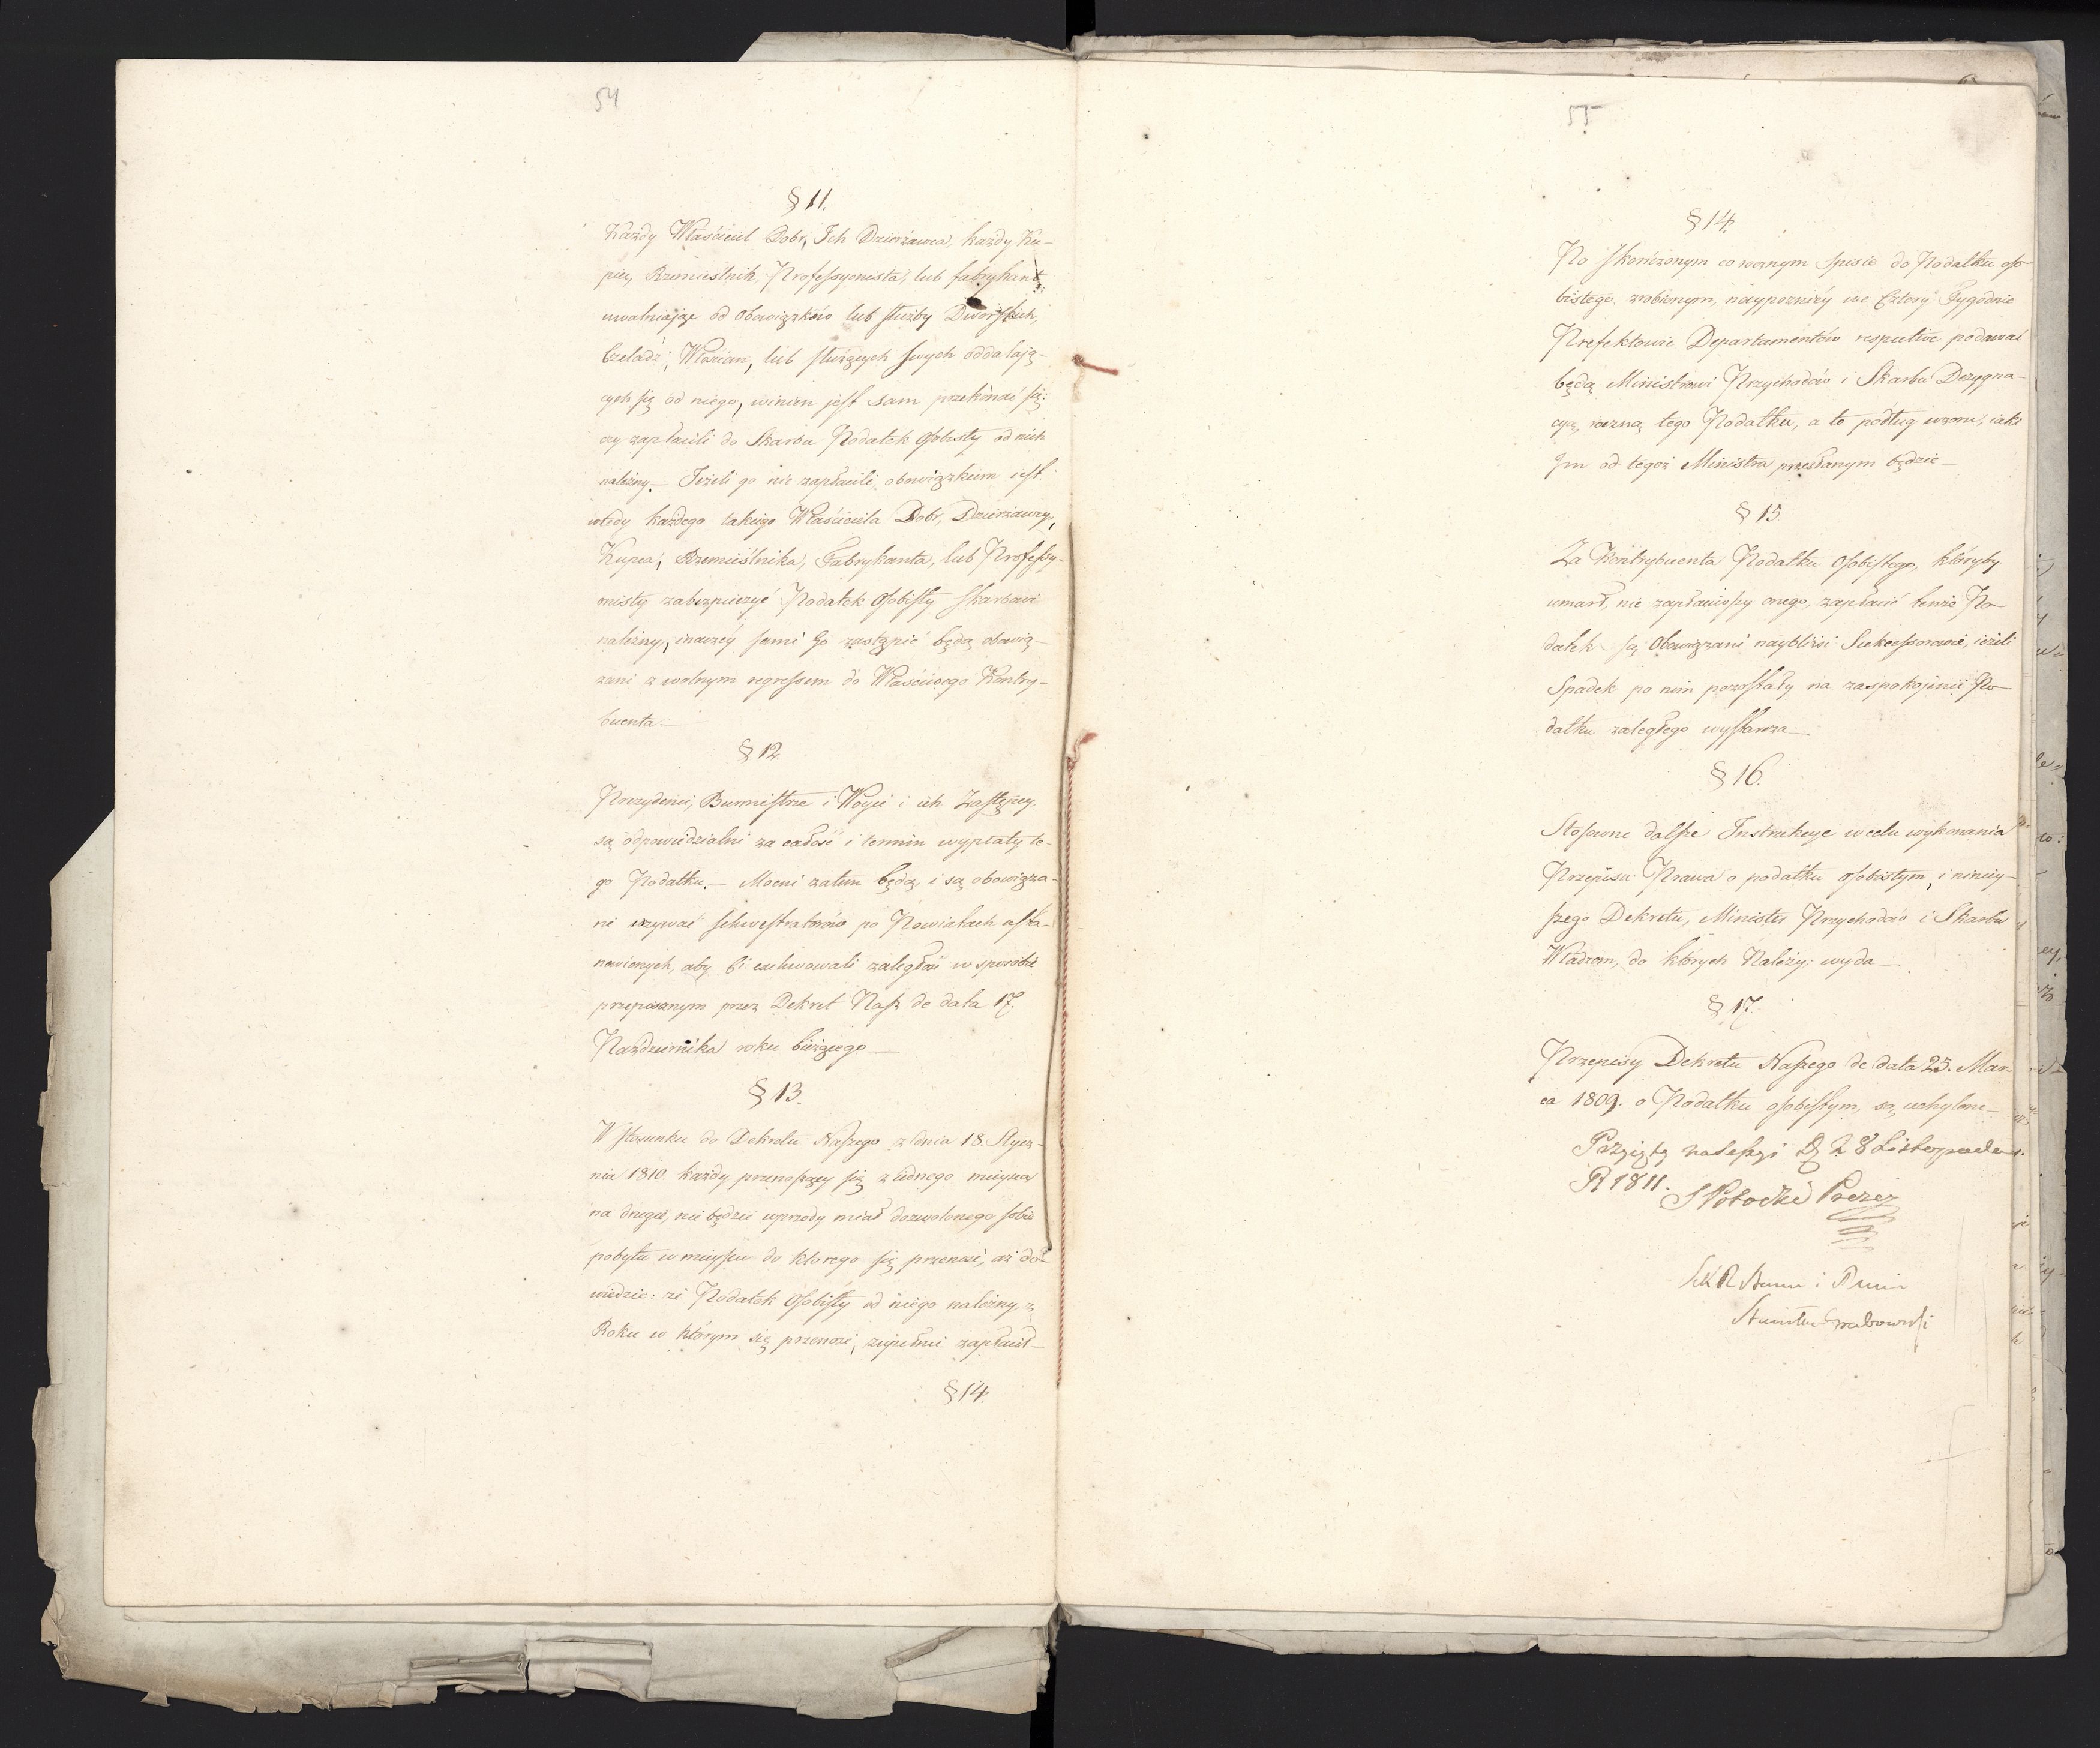 54
§ 11.
Każdy Właściciel Dobr, Ich Dzierżawca, każdy Ku-
piec, Rzemieślnik, Professyonista, lub fabrykant,
uwalniając od Obowiązków lub służby Dworskich,
Czeladź, Włościan, lub służących swych oddalają-
cych się od niego, winien jest sam przekonać się:
czy zapłacili do Skarbu Podatek Osobisty od nich
należny. – Jeżeli go nie zapłacili, obowiązkiem iest
wtedy każdego takiego Właściciela Dobr, Dzierżawcy,
Kupca, Rzemieślnika, Fabrykanta, lub Professy-
onisty zabezpieczyć Podatek Osobisty Skarbowi
należny, inaczéy sami go zastąpić będą obowią-
zani z wolnym regressem do Właściwego Kontry-
buenta –
§ 12.
Prezydenci, Burmistrze i Woyci i ich Zastępcy,
są odpowiedzialni za całość i termin wypłaty te-
go Podatku. – Mocni zatem będą i są obowiąza-
ni wzywać sekwestratorów po Powiatach usta-
nowionych, aby Ci exekwowali zaległość w sposobie
przepisanym przez Dekret Nasz de data 17.
Października roku bieżącego –
§ 13.
W Stosunku do Dekretu Naszego z dnia 18. Stycz-
nia 1810. każdy przenoszący się z iednego mieysca
na drugie, nie będzie uprzody miał dozwolonego sobie
pobytu w mieyscu do ktorego się przenosi, aż do-
wiedzie: że Podatek Osobisty od niego należny z
Roku w którym się przenosi, zupełnie zapłacił –
§ 14.
55
§ 14.
Po Skończonym corocznym Spisie do Podatku oso-
bistego zrobionym, naypoźniéy we Cztery Tygodnie
Prefektowie Departamentów respective podawać
będą Ministrowi Przychodów i Skarbu Dezygna-
cyą roczną tego Podatku, a to podług wzoru, iaki
Im od tegoż Ministra przesłanym będzie –
§ 15.
Za Kontrybuenta Podatku Osobistego, któryby
umarł, nie zapłaciwszy onego, zapłacić tenże Po-
datek są Obowiązani naybliżsi Sukcessorowie, ieżeli
Spadek po nim pozostały na zaspokojenie Po-
datku zaległego wystarcza –
§ 16.
Stósowne dalsze Instrukcye w celu wykonania
Przepisu Prawa o podatku osobistym, i ninniey-
szego Dekretu, Minister Przychodów i Skarbu
Władzom, do których Należy: wyda –
§ 17.
Przepisy Dekretu Naszego de data 25. Mar-
ca 1809. o Podatku osobistym, są uchylone –
Przyięty na Sessyi D. 28 Listopada
R 1811.
S Potocki Prezes
Sek R Stanu i
Grabowski